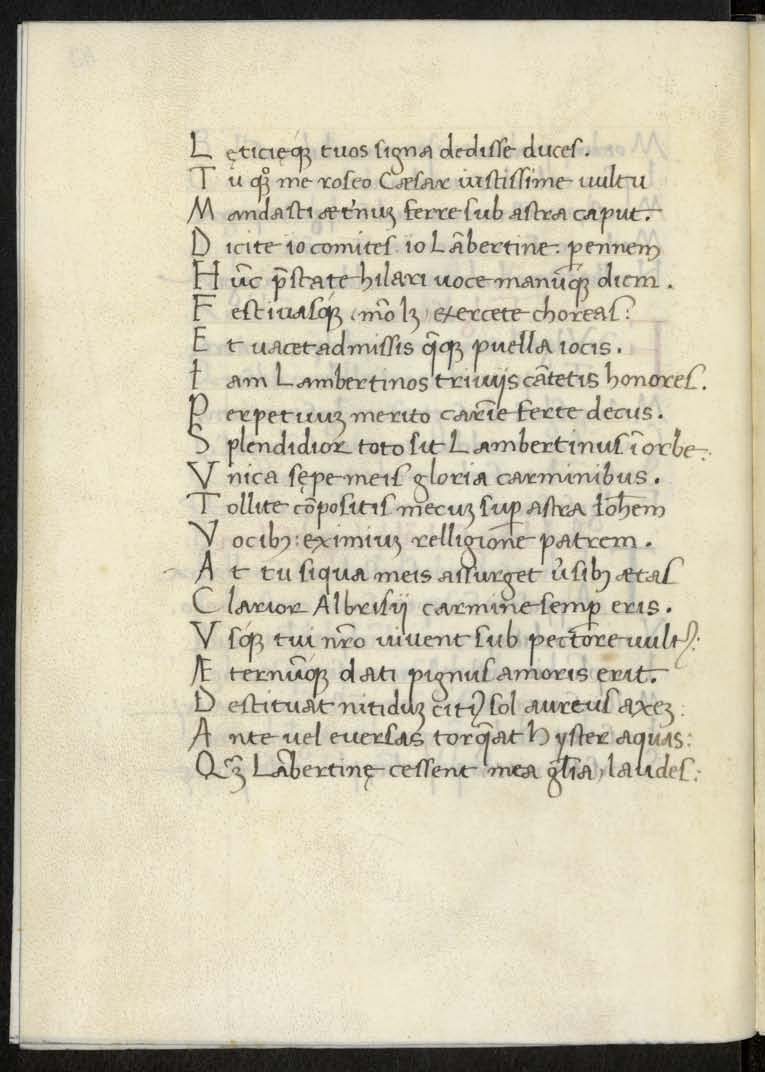 L ęticięqꝫ tuos signa dedisse duces.
T u quoqꝫ me roseo Cæsar iustissime uultu
M andasti æt'nuꝫ ferre sub astra caput.
D icite io comites. io Lābertine. p̱ennem
H ūc p̄state hilari uoce manūqꝫ diem.
F estiuasqꝫ (mō lꝫ) exercete choreas:
E t uacet admissis q̄qꝫ puella iocis.
I am Lambertinos triuijs cātetis honores.
P erpetuuꝫ merito carīe ferte decus.
S plendidior toto sit Lambertinus ī orbe:
V nica sępe meis gloria carminibus.
T ollite cōpositis mecuꝫ sup̱ astra Ioh̄em
V ocibꝫ: eximiuꝫ relligiōne patrem.
A t tu siqua meis assurget ūsibꝫ ætas
C larior Albrisij carmine semp̱ eris.
V sqꝫ tui nr̄o uiuent sub pectore uultꝰ:
Æ ternūqꝫ dati pignus amoris erit.
D estituat nitiduꝫ citiꝰ sol aureus axeꝫ:
A nte uel euersas torq̄at hyster aquas:
Q ꝫ Lābertinę cessent mea gl̄ia, laudes: